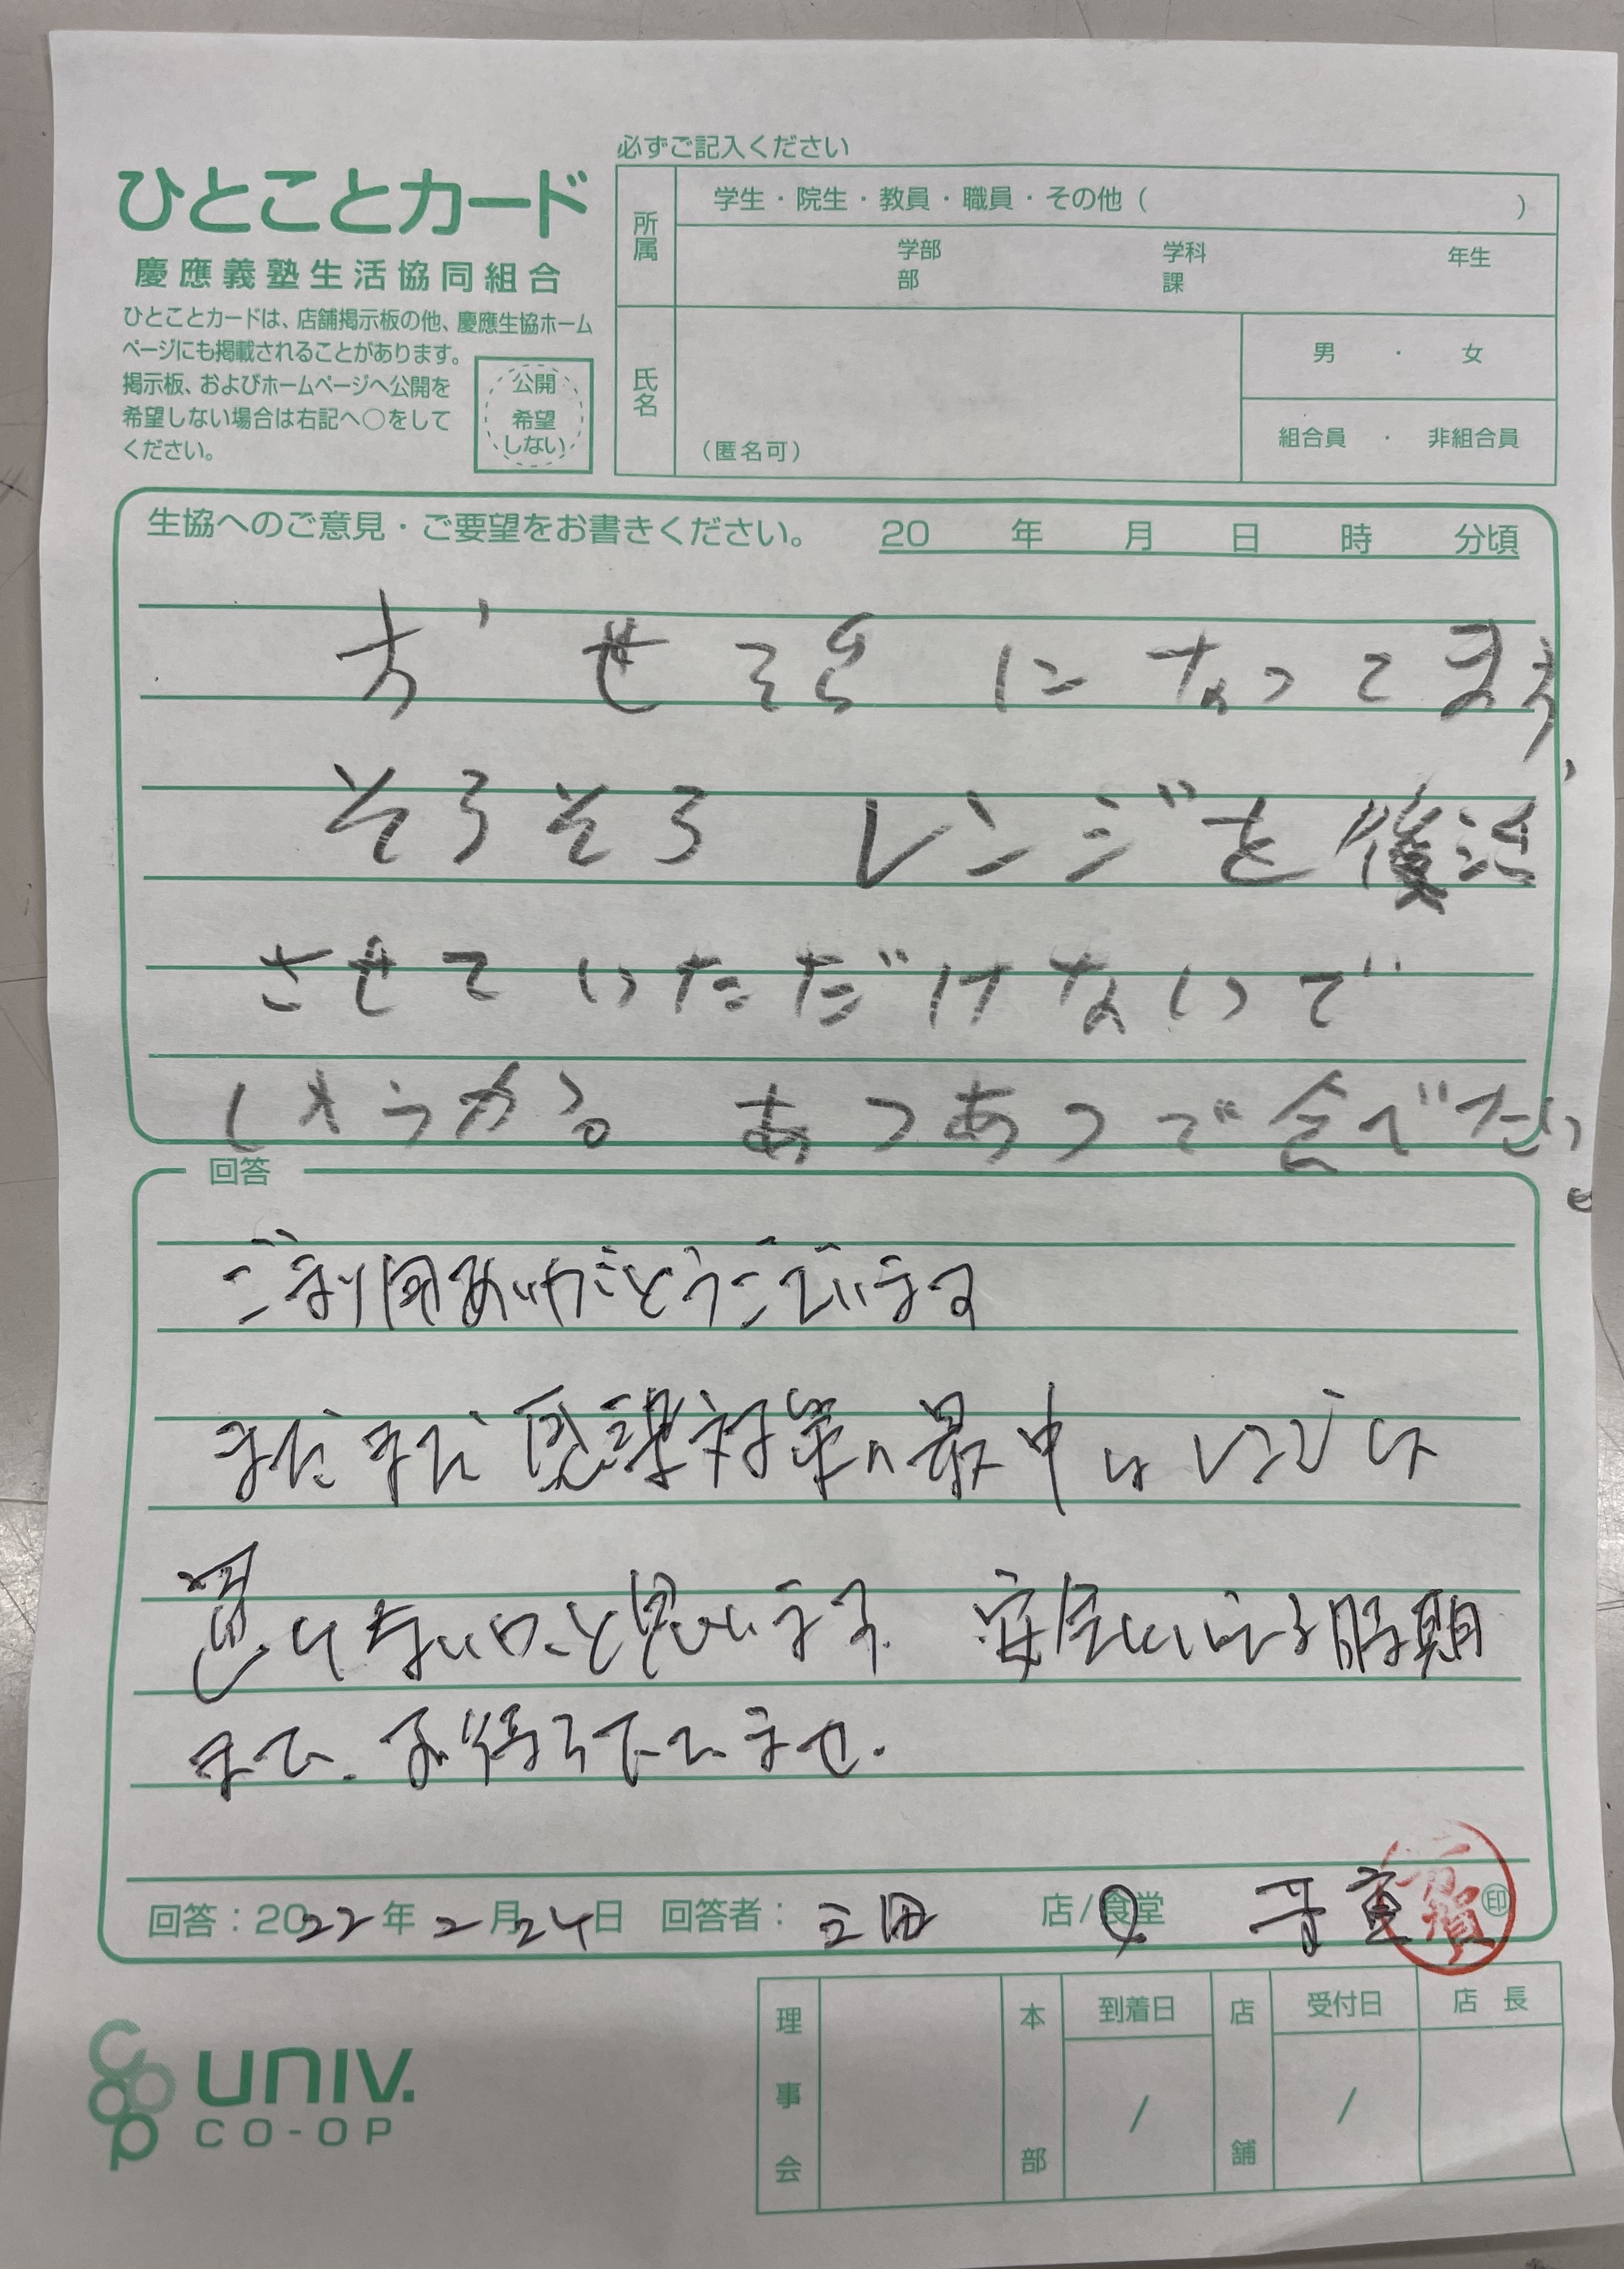 必ずご記入ください
ひとことカード
慶應義塾生活協同組合
ひとことカードは、店舗掲示板の他、慶應生協ホーム
ページにも掲載されることがあります。
掲示板、およびホームページへ公開を
希望しない場合は右記へ○をして
ください。
公開
希望
しない
所属
学生・院生・教員・職員・その他（ ）
学部 学科 年生
部 課
氏名
（匿名可）
男 ・ 女
組合員 ・ 非組合員
生協へのご意見・ご要望をお書きください。 20 年 月 日 時 分頃
お世話になってます、
そろそろレンジを復活
させていただけないで
しょうか。あつあつで食べたい。
回答
ご利用ありがとうございます
まだまだ感染対策の最中 レンジは
置けないかと思います. 安全といえる時期
まで、お待ち下さいませ.
回答：2022年2月24日 回答者：三田 店/食堂 印
理事会
本部
到着日
/
店舗
受付日
/
店長
UNIV.
CO-OP